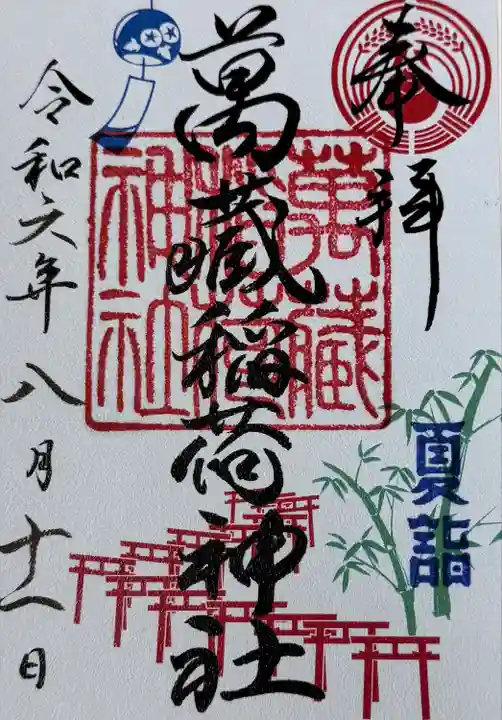 奉拝
夏詣
萬藏稲荷神社
萬藏
稲荷
神社
令和六年八月十一日